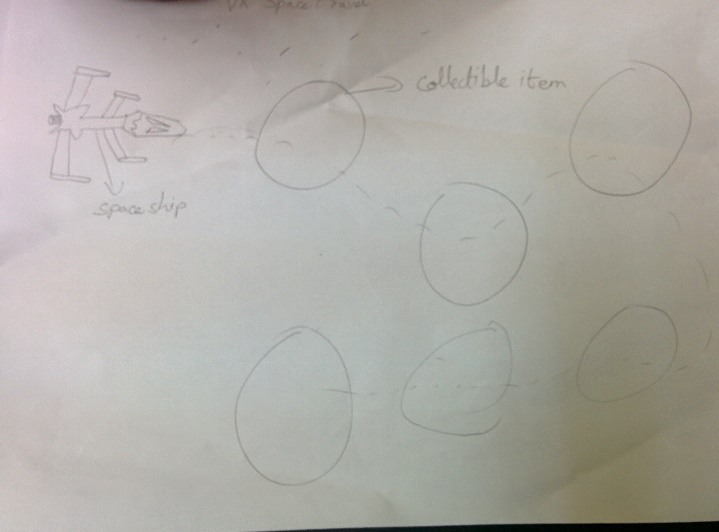 VR Space travel
collectible item
space ship